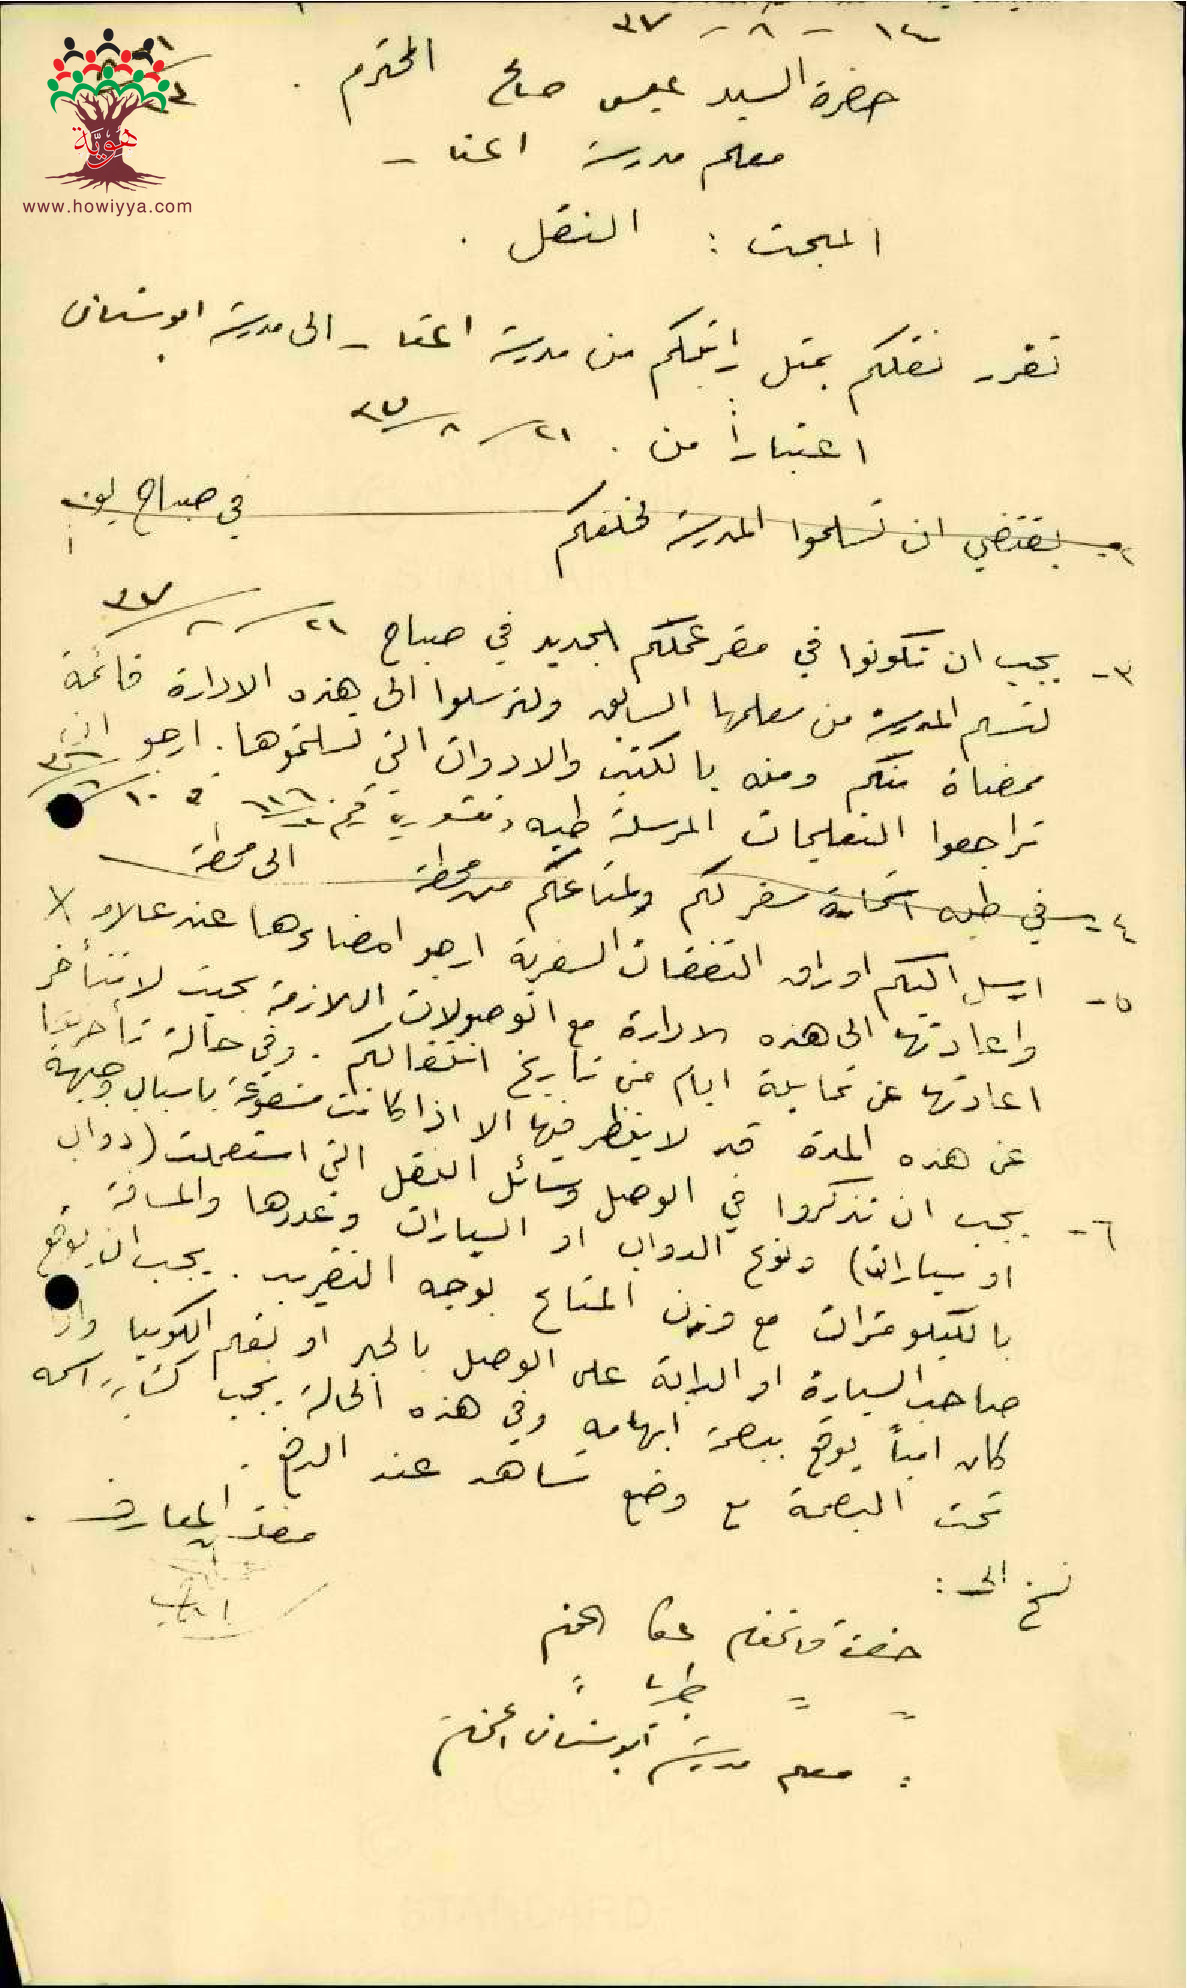 ١٤ - ٨ - ٣٧
هوية
www.howiyya.com
حضرة السيد عيسى صالح المحترم .
معلم مدرسة
المبحث : النقل .
تقرر نقلكم بمثل راتبكم من مدرسة الى مدرسة ابو سنان
اعتباراً من ٢١/٨/٣٧ .
٢- يقتضي ان تسلموا المدرسة لخلفكم في صباح يوم
٣- يجب ان تكونوا في مقر عملكم الجديد في صباح ٢١/٨/٣٧
لتسلم المدرسة من معلمها السابق ولترسلوا الى هذه الادارة قائمة
ممضاة منكم ومنه بالكتب والادوات التي تسلمتموها . ارجو ان
تراجعوا التعليمات المرسلة طيه
٤- في طيه سفر لكم ولمتاعكم من محطة الى محطة
٥- ارسل اليكم اوراق النفقات السفرية ارجو امضاءها عند علامة X
واعادتها الى هذه الادارة مع الوصولات اللازمة بحيث لا تتأخر
اعادتها عن ثمانية ايام من تاريخ انتقالكم . وفي حالة تأخرها
عن هذه المدة قد لا ينظر فيها الا اذا كانت مشفوعة باسباب وجيهة
٦- يجب ان تذكروا في الوصل وسائل النقل التي استعملت (دواب
او سيارات) ونوع الدواب او السيارات وعددها والمسافة
بالكيلومترات مع وزن المتاع بوجه التقريب . يجب ان يوقع
صاحب السيارة او الدابة على الوصل بالحبر او بقلم الكوبيا واذا
كان امياً يوقع ببصمة ابهامه وفي هذه الحالة يجب كتابة اسمه
تحت البصمة مع وضع شاهد عند الدفع .
مفتش المعارف .
نسخ الى :
حضرة قائمقام عكا المحترم
" " طبريا "
: معلم مدرسة ابو سنان المحترم